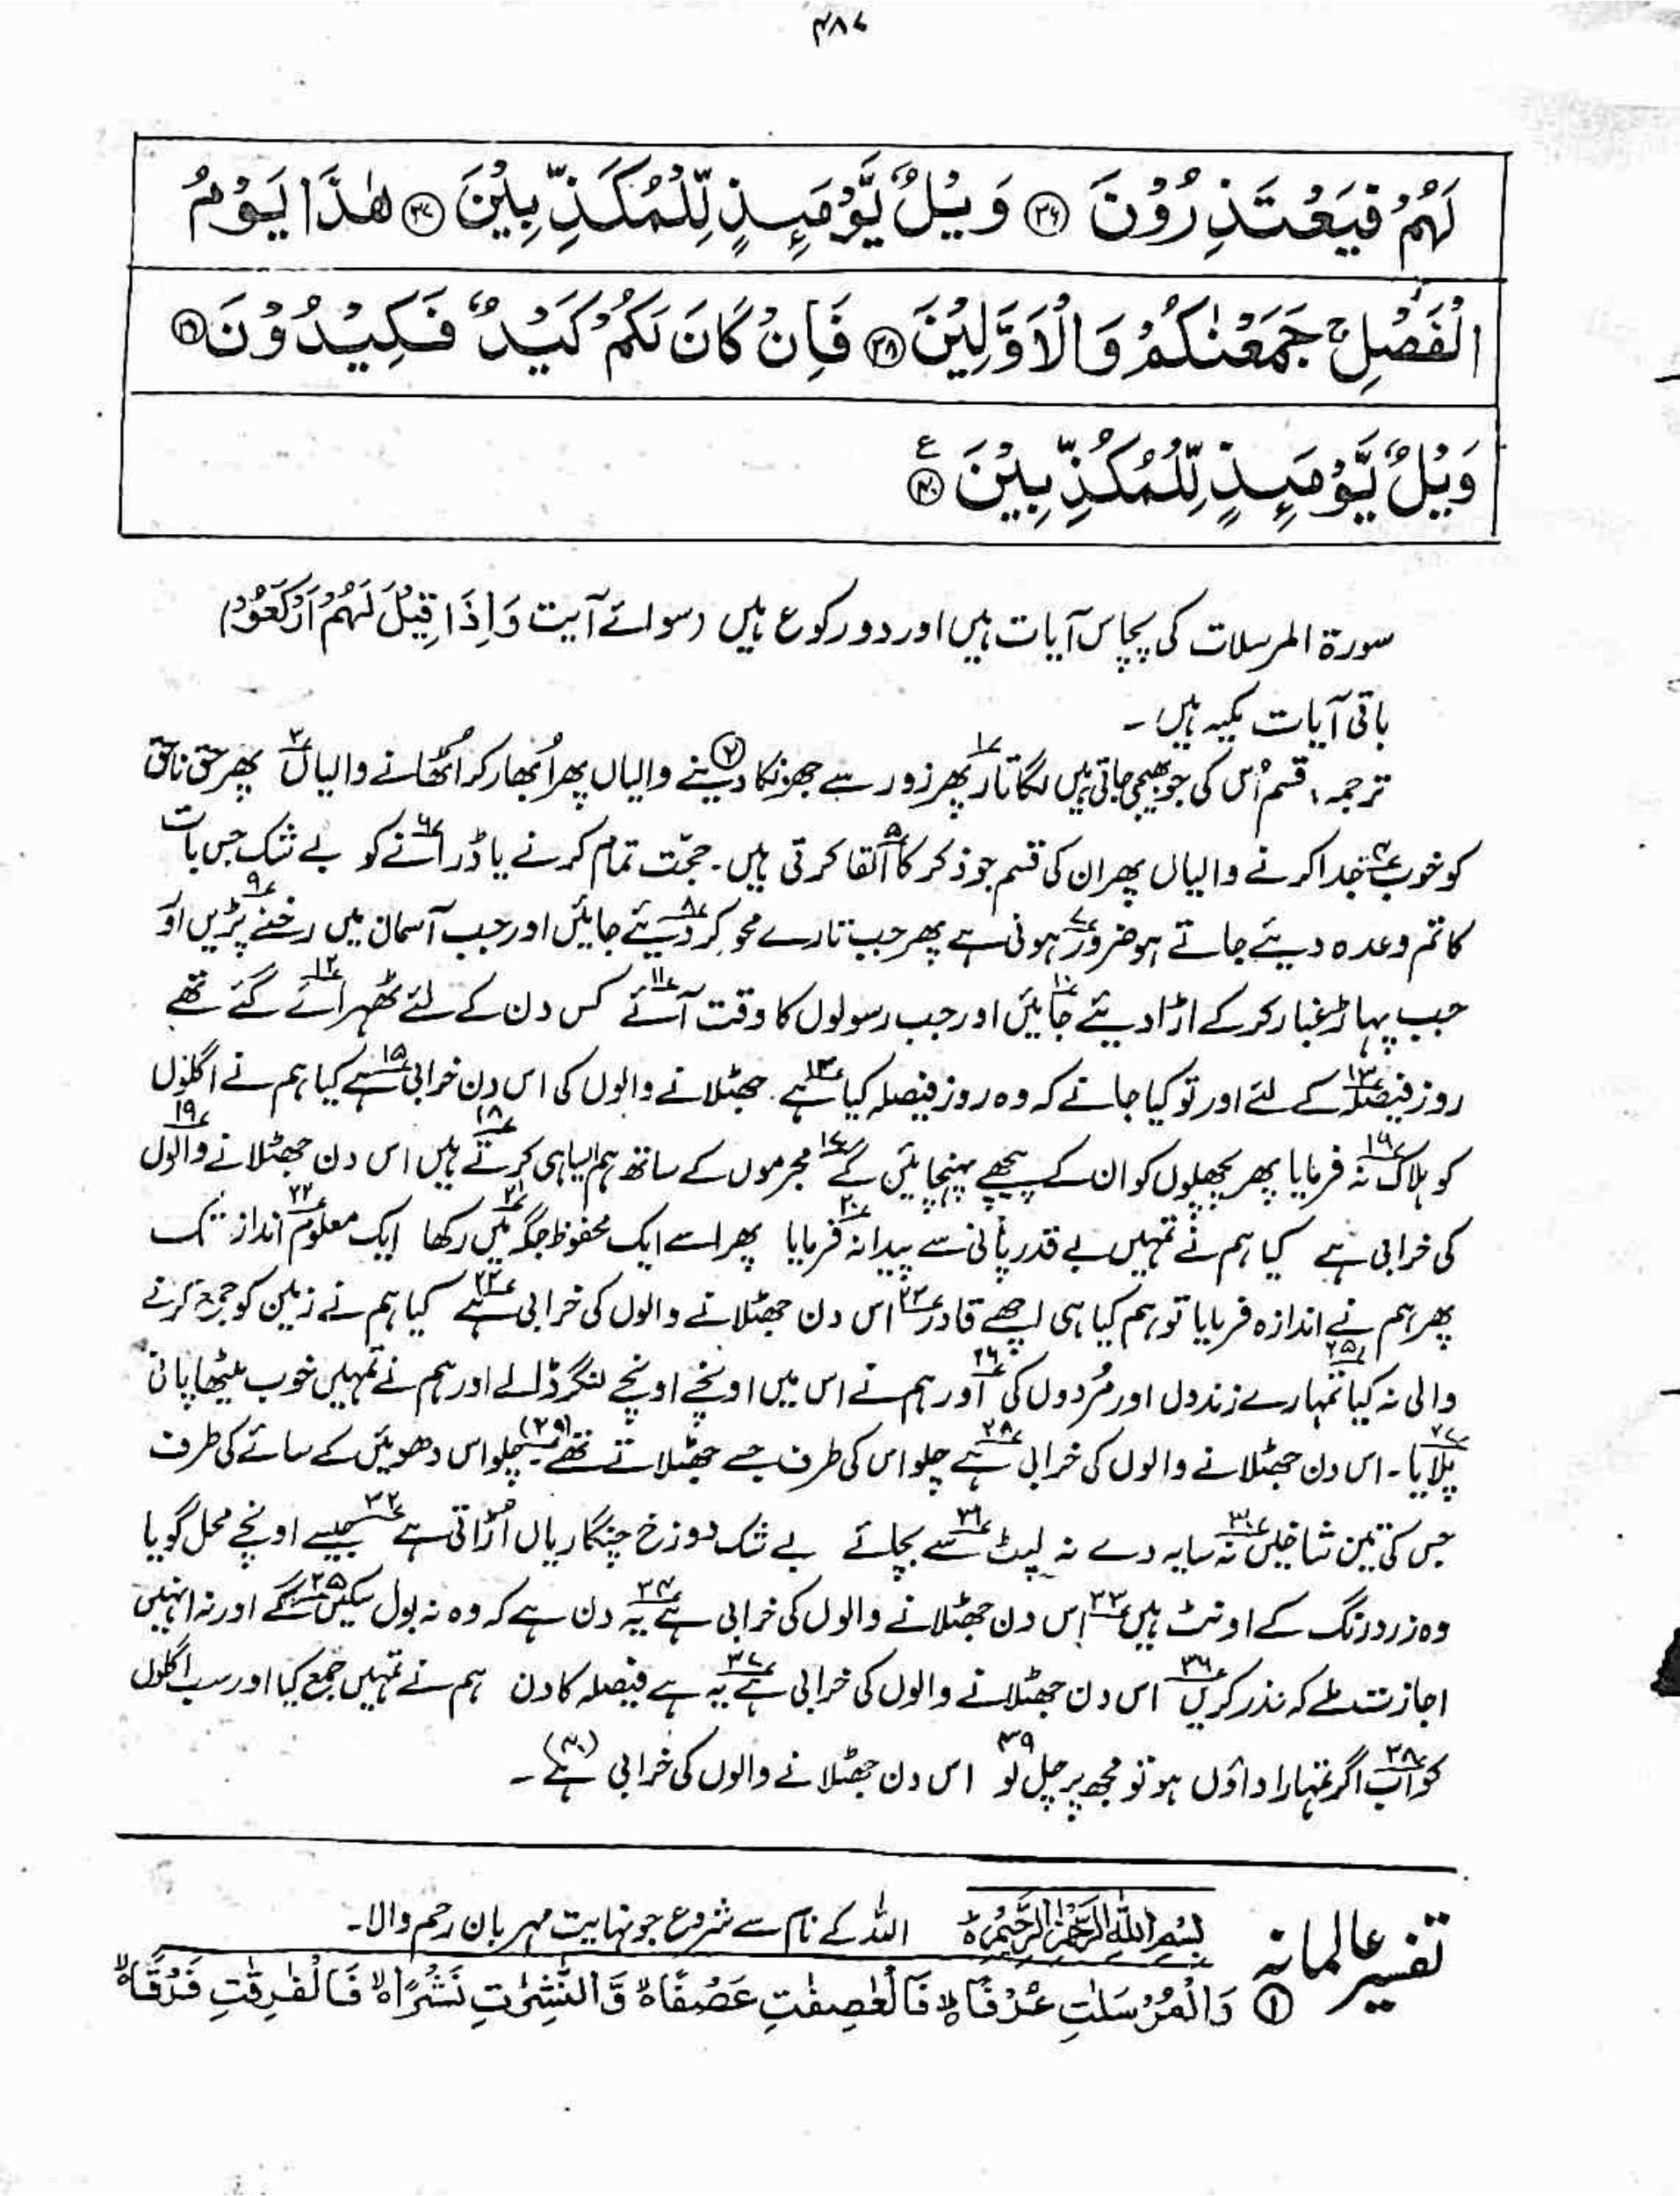 ۴۸۷
لَهُمْ فَيَعْتَذِرُوْنَ ۳۶ وَيْلٌ يَّوْمَىِٕذٍ لِّلْمُكَذِّبِيْنَ ۳۷ هٰذَا يَوْمُ
الْفَصْلِ ۚ جَمَعْنٰكُمْ وَالْاَوَّلِيْنَ ۳۸ فَاِنْ كَانَ لَكُمْ كَيْدٌ فَكِيْدُوْنَ
وَيْلٌ يَّوْمَىِٕذٍ لِّلْمُكَذِّبِيْنَ ۴۰ ع
سورۃ المرسلات کی پچاس آیات ہیں اور دو رکوع ہیں (سوائے آیت وَاِذَا قِیْلَ لَهُمُ ارْكَعُوْا)
باقی آیات مکیہ ہیں ۔
ترجمہ: قسم اُس کی جو بھیجی جاتی ہیں لگاتار ۱ پھر زور سے جھونکا دینے والیاں ۲ پھر اُبھار کر اُٹھانے والیاں ۳ پھر حق ناحق
کو خوب جدا کرنے والیاں ۴ پھر ان کی قسم جو ذکر کا القا کرتی ہیں ۵ ۔ حجّت تمام کرنے یا ڈرانے کو ۶ بے شک جس بات
کا تم وعدہ دیئے جاتے ہو ضرور ہونی ہے ۷ پھر جب تارے محو کر دیئے جائیں ۸ اور جب آسمان میں رخنے پڑیں ۹ اور
جب پہاڑ غبار کر کے اڑا دیئے جائیں ۱۰ اور جب رسولوں کا وقت آئے ۱۱ کس دن کے لئے ٹھہرائے گئے تھے ۱۲
روز فیصلہ کے لئے ۱۳ اور تو کیا جانے کہ وہ روز فیصلہ کیا ہے ۱۴ جھٹلانے والوں کی اس دن خرابی ہے ۱۵ کیا ہم نے اگلوں
کو ہلاک نہ فرمایا ۱۶ پھر پچھلوں کو ان کے پیچھے پہنچائیں گے ۱۷ مجرموں کے ساتھ ہم ایسا ہی کرتے ہیں ۱۸ اس دن جھٹلانے والوں ۱۹
کی خرابی ہے کیا ہم نے تمہیں بے قدر پانی سے پیدا نہ فرمایا ۲۰ پھر اسے ایک محفوظ جگہ میں رکھا ۲۱ ایک معلوم انداز تک ۲۲
پھر ہم نے اندازہ فرمایا تو ہم کیا ہی اچھے قادر ۲۳ اس دن جھٹلانے والوں کی خرابی ہے ۲۴ کیا ہم نے زمین کو جمع کرنے
والی نہ کیا ۲۵ تمہارے زندوں اور مُردوں کی ۲۶ اور ہم نے اس میں اونچے اونچے لنگر ڈالے اور ہم نے تمہیں خوب میٹھا پانی
پلایا ۲۷ ۔ اس دن جھٹلانے والوں کی خرابی ہے ۲۸ چلو اس کی طرف جسے جھٹلاتے تھے (۲۹) ۔ چلو اس دھوئیں کے سائے کی طرف
جس کی تین شاخیں ۳۰ نہ سایہ دے نہ لپٹ سے بچائے ۳۱ بے شک دوزخ چنگاریاں اُڑاتی ہے ۳۲ جیسے اونچے محل گویا
وہ زرد رنگ کے اونٹ ہیں ۳۳ اس دن جھٹلانے والوں کی خرابی ہے ۳۴ یہ دن ہے کہ وہ نہ بول سکیں گے ۳۵ اور نہ انہیں
اجازت ملے کہ عذر کریں ۳۶ اس دن جھٹلانے والوں کی خرابی ہے ۳۷ یہ ہے فیصلہ کا دن ہم نے تمہیں جمع کیا اور سب اگلوں
کو ۳۸ اب اگر تمہارا داؤں ہو تو مجھ پر چل لو ۳۹ اس دن جھٹلانے والوں کی خرابی ہے (۴۰) ۔
تفسیر عالمانہ بِسْمِ اللّٰهِ الرَّحْمٰنِ الرَّحِيْمِ اللّٰہ کے نام سے شروع جو نہایت مہربان رحم والا۔
① وَالْمُرْسَلٰتِ عُرْفًا ۙ فَالْعٰصِفٰتِ عَصْفًا ۙ وَّالنّٰشِرٰتِ نَشْرًا ۙ فَالْفٰرِقٰتِ فَرْقًا ۙ